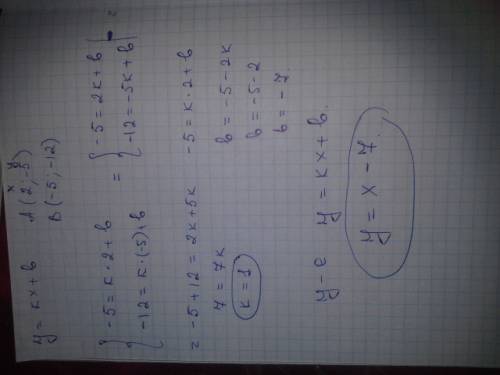 y = kx + b   A(2; -5)
x y
B(-5; -12)
{ -5 = k · 2 + b   = { -5 = 2k + b | - =
{ -12 = k · (-5) + b   { -12 = -5k + b |
= -5 + 12 = 2k + 5k   -5 = k · 2 + b
7 = 7k   b = -5 - 2k
k = 1   b = -5 - 2
b = -7.
y-e   y = kx + b.
y = x - 7.